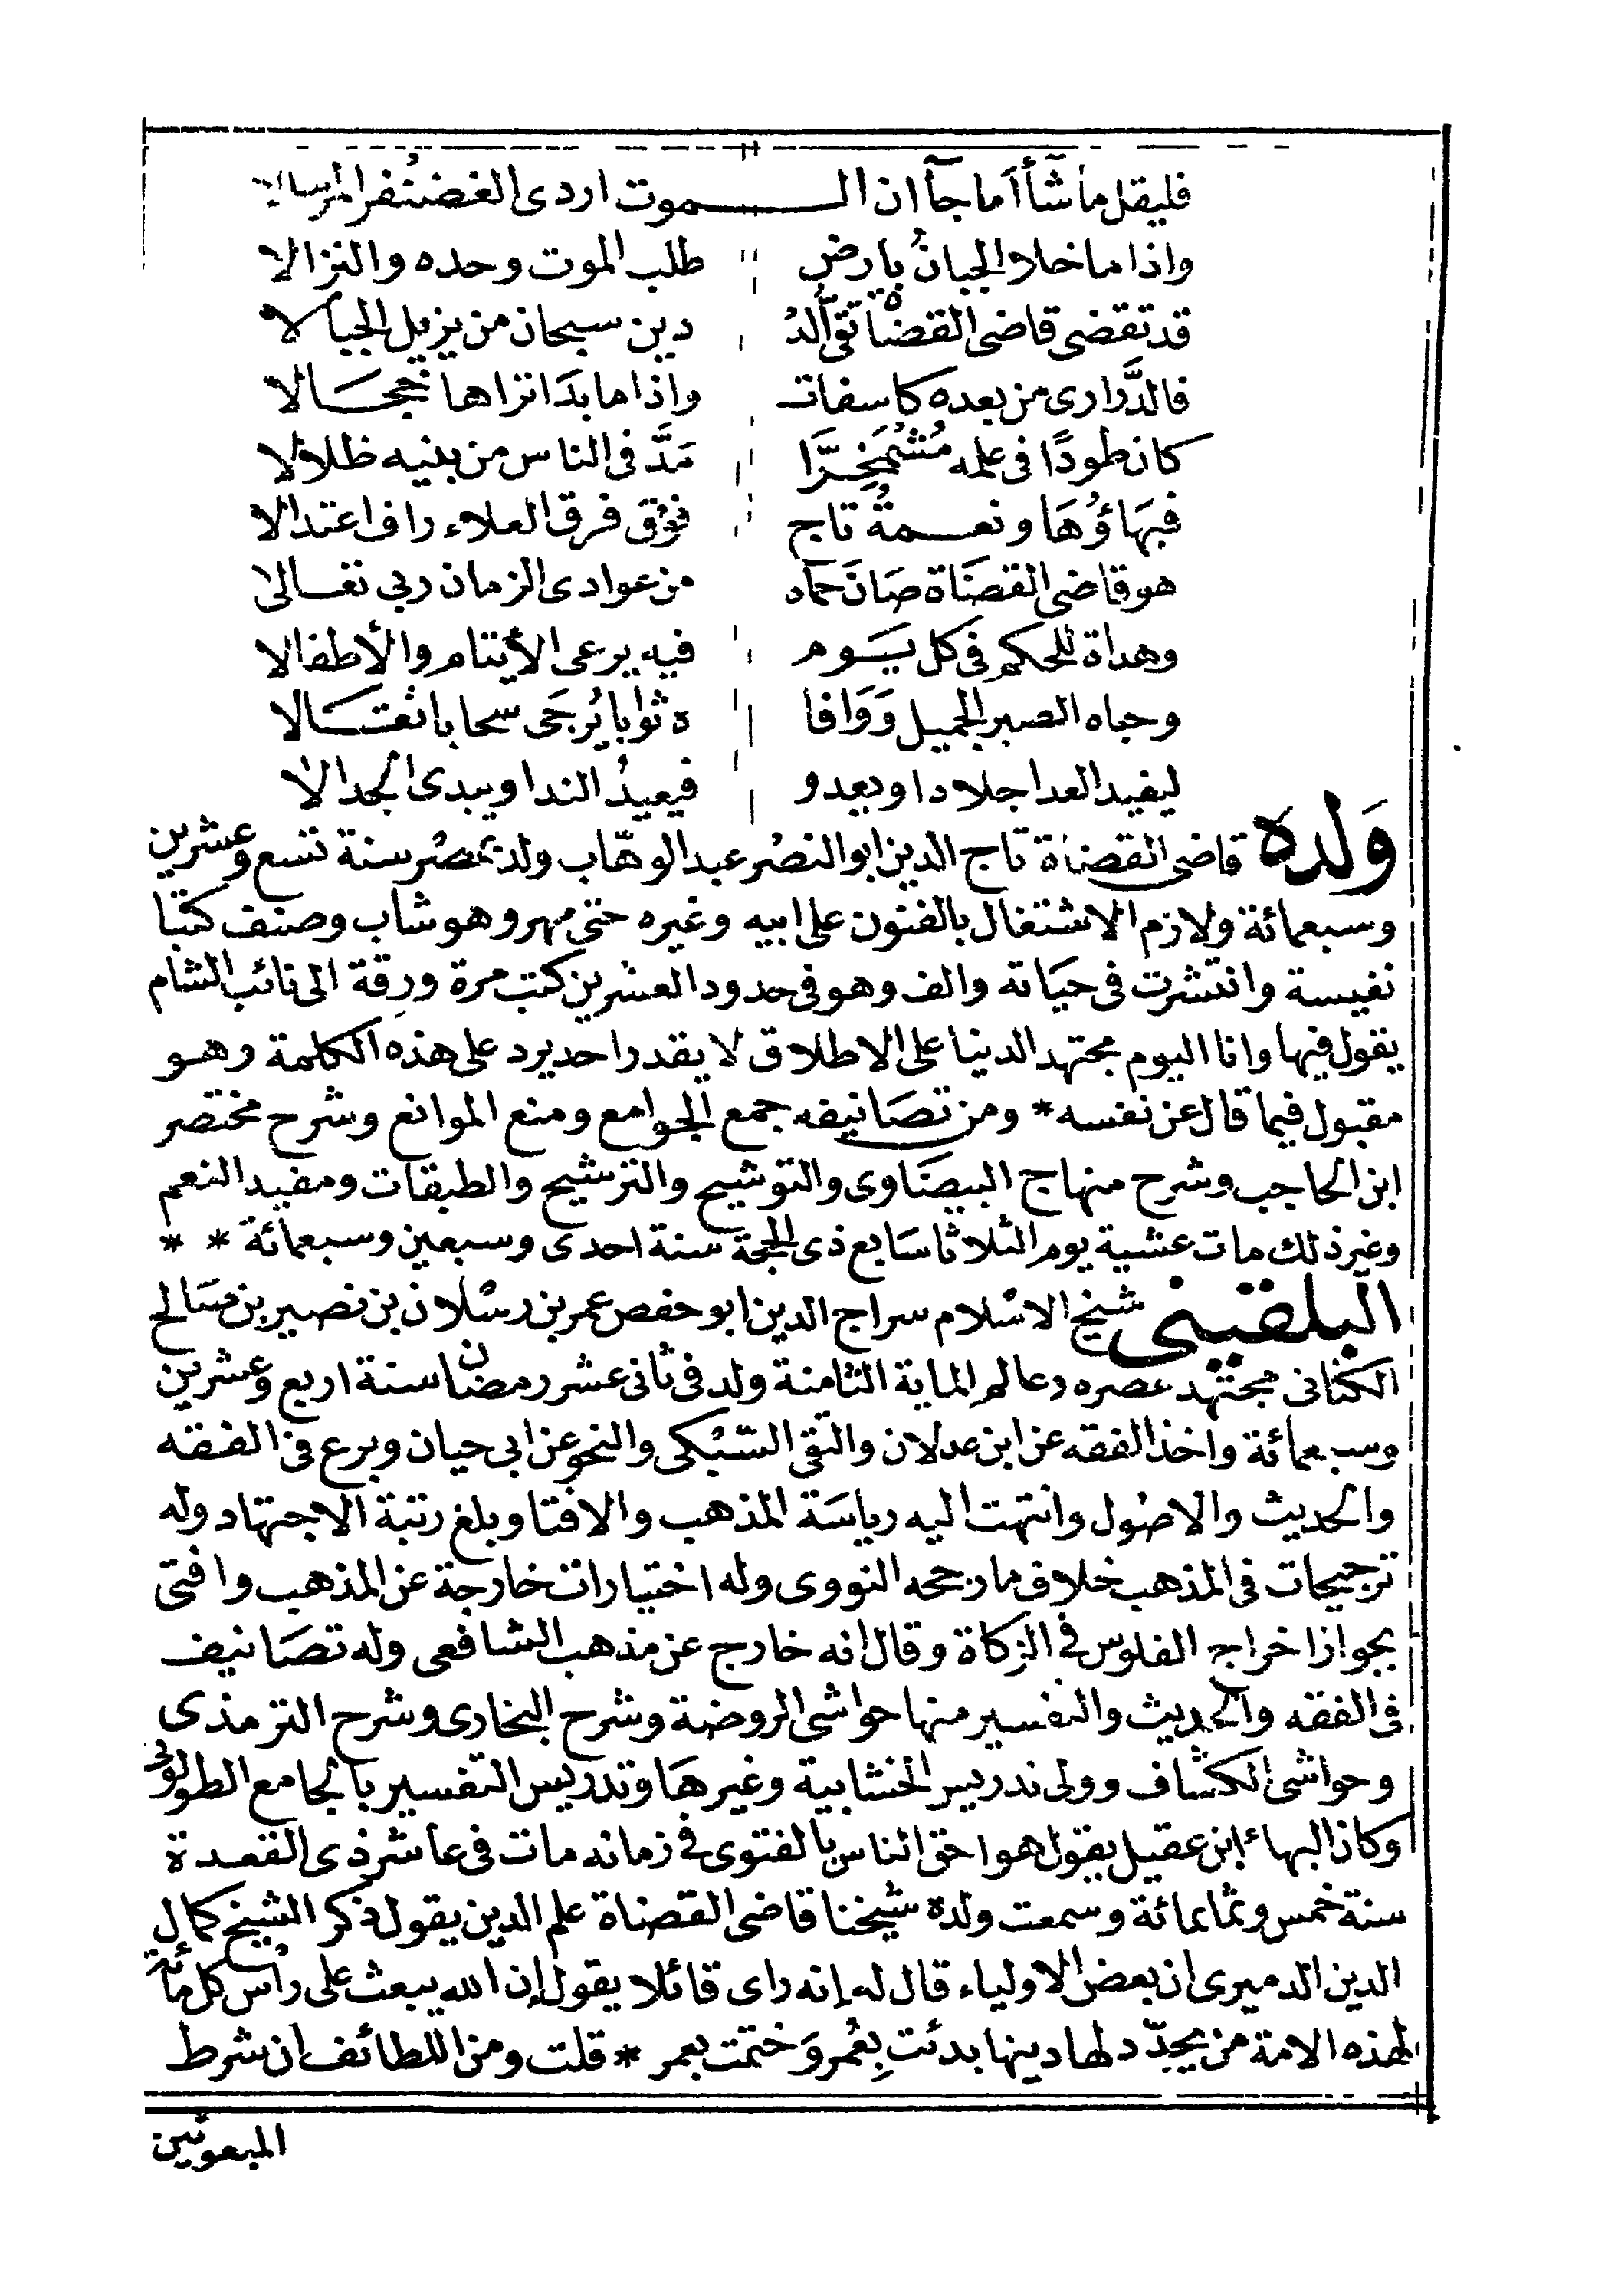 فليقل ما شأ أما جآ ان الموت اردى الغضنفر
واذا ما خلا الجبانُ بارض طلب الموت وحده والنزالا
قد تقضى قاضى القضاة تقى الد دين سبحان من يزيل الجبالا
فالدَّرارى من بعده كاسفات واذا ما بدَا تراها حجَالا
كان طودًا فى علمه مُشْمَخِرَّا مَدَّ فى الناس من بنيه ظلالا
فبهاؤُهَا ونعمةُ تاج فوق فرق العلاء راف اعتدالا
هو قاضى القضَاة صَانَ حماه من عوادى الزمان ربى تعالى
وهداة للحكم فى كل يَوم فيه يرعى الأيتام والأطفالا
وحباه الصبر الجميل وَوَافا ه ثوابا يُرجَى سحابا ثقَالا
ليفيد العدا جلادا ويعدو فيعيدُ الندا ويبدى الجدالا
وَلده قاضى القضاة تاج الدين ابو النصر عبد الوهّاب ولد بمصر سنة تسع وعشرين
وسبعمائة ولازم الاشتغال بالفنون على ابيه وغيره حتى مهر وهو شاب وصنف كتبا
نفيسة وانتشرت فى حيَاته والف وهو فى حدود العشرين كتب مرة ورقة الى نائب الشام
يقول فيها وانا اليوم مجتهد الدنيا على الاطلاق لا يقدر احد يرد على هذه الكلمة وهو
مقبول فيما قال عن نفسه * ومن تصَانيفه جمع الجوامع ومنع الموانع وشرح مختصر
ابن الحاجب وشرح منهاج البيضَاوى والتوشيح والترشيح والطبقات ومفيد النعم
وغير ذلك مات عشية يوم الثلاثا سَابع ذى الحجة سنة احدى وسبعين وسبعمائة * *
البلقينى شيخ الاسْلام سراج الدين ابو حفص عمر بن رسْلان بن نصير بن صَالح
الكنانى مجتهد عصره وعالم الماية الثامنة ولد فى ثانى عشر رمضان سنة اربع وعشرين
وسبعمائة واخذ الفقه عن ابن عدلان والتقى السّبكى والنحو عن ابى حيان وبرع فى الفقه
والحديث والاصُول وانتهت اليه رياسَة المذهب والافتا وبلغ رتبة الاجتهاد وله
ترجيحات فى المذهب خلاف ما رجحه النووى وله اختيارات خارجة عن المذهب وافتى
بجواز اخراج الفلوس فى الزكاة وقال انه خارج عن مذهب الشافعى وله تصَانيف
فى الفقه والحديث والتفسير منها حواشى الروضة وشرح البخارى وشرح الترمذى
وحواشى الكشاف وولى تدريس الخشابية وغيرهَا وتدريس التفسير بالجامع الطولونى
وكان البهاء ابن عقيل يقول هو احق الناس بالفتوى فى زمانه مات فى عاشر ذى القعدة
سنة خمس وثمانمائة وسمعت ولده شيخنا قاضى القضاة علم الدين يقول ذكر الشيخ كمال
الدين الدميرى ان بعض الاولياء قال له إنه راى قائلا يقول إن الله يبعث على راس كل مائة
لهذه الامة من يجدّد لها دينها بدئت بِعُمر وَختمت بعمر * قلت ومن اللطائف ان شرط
المبعوثين